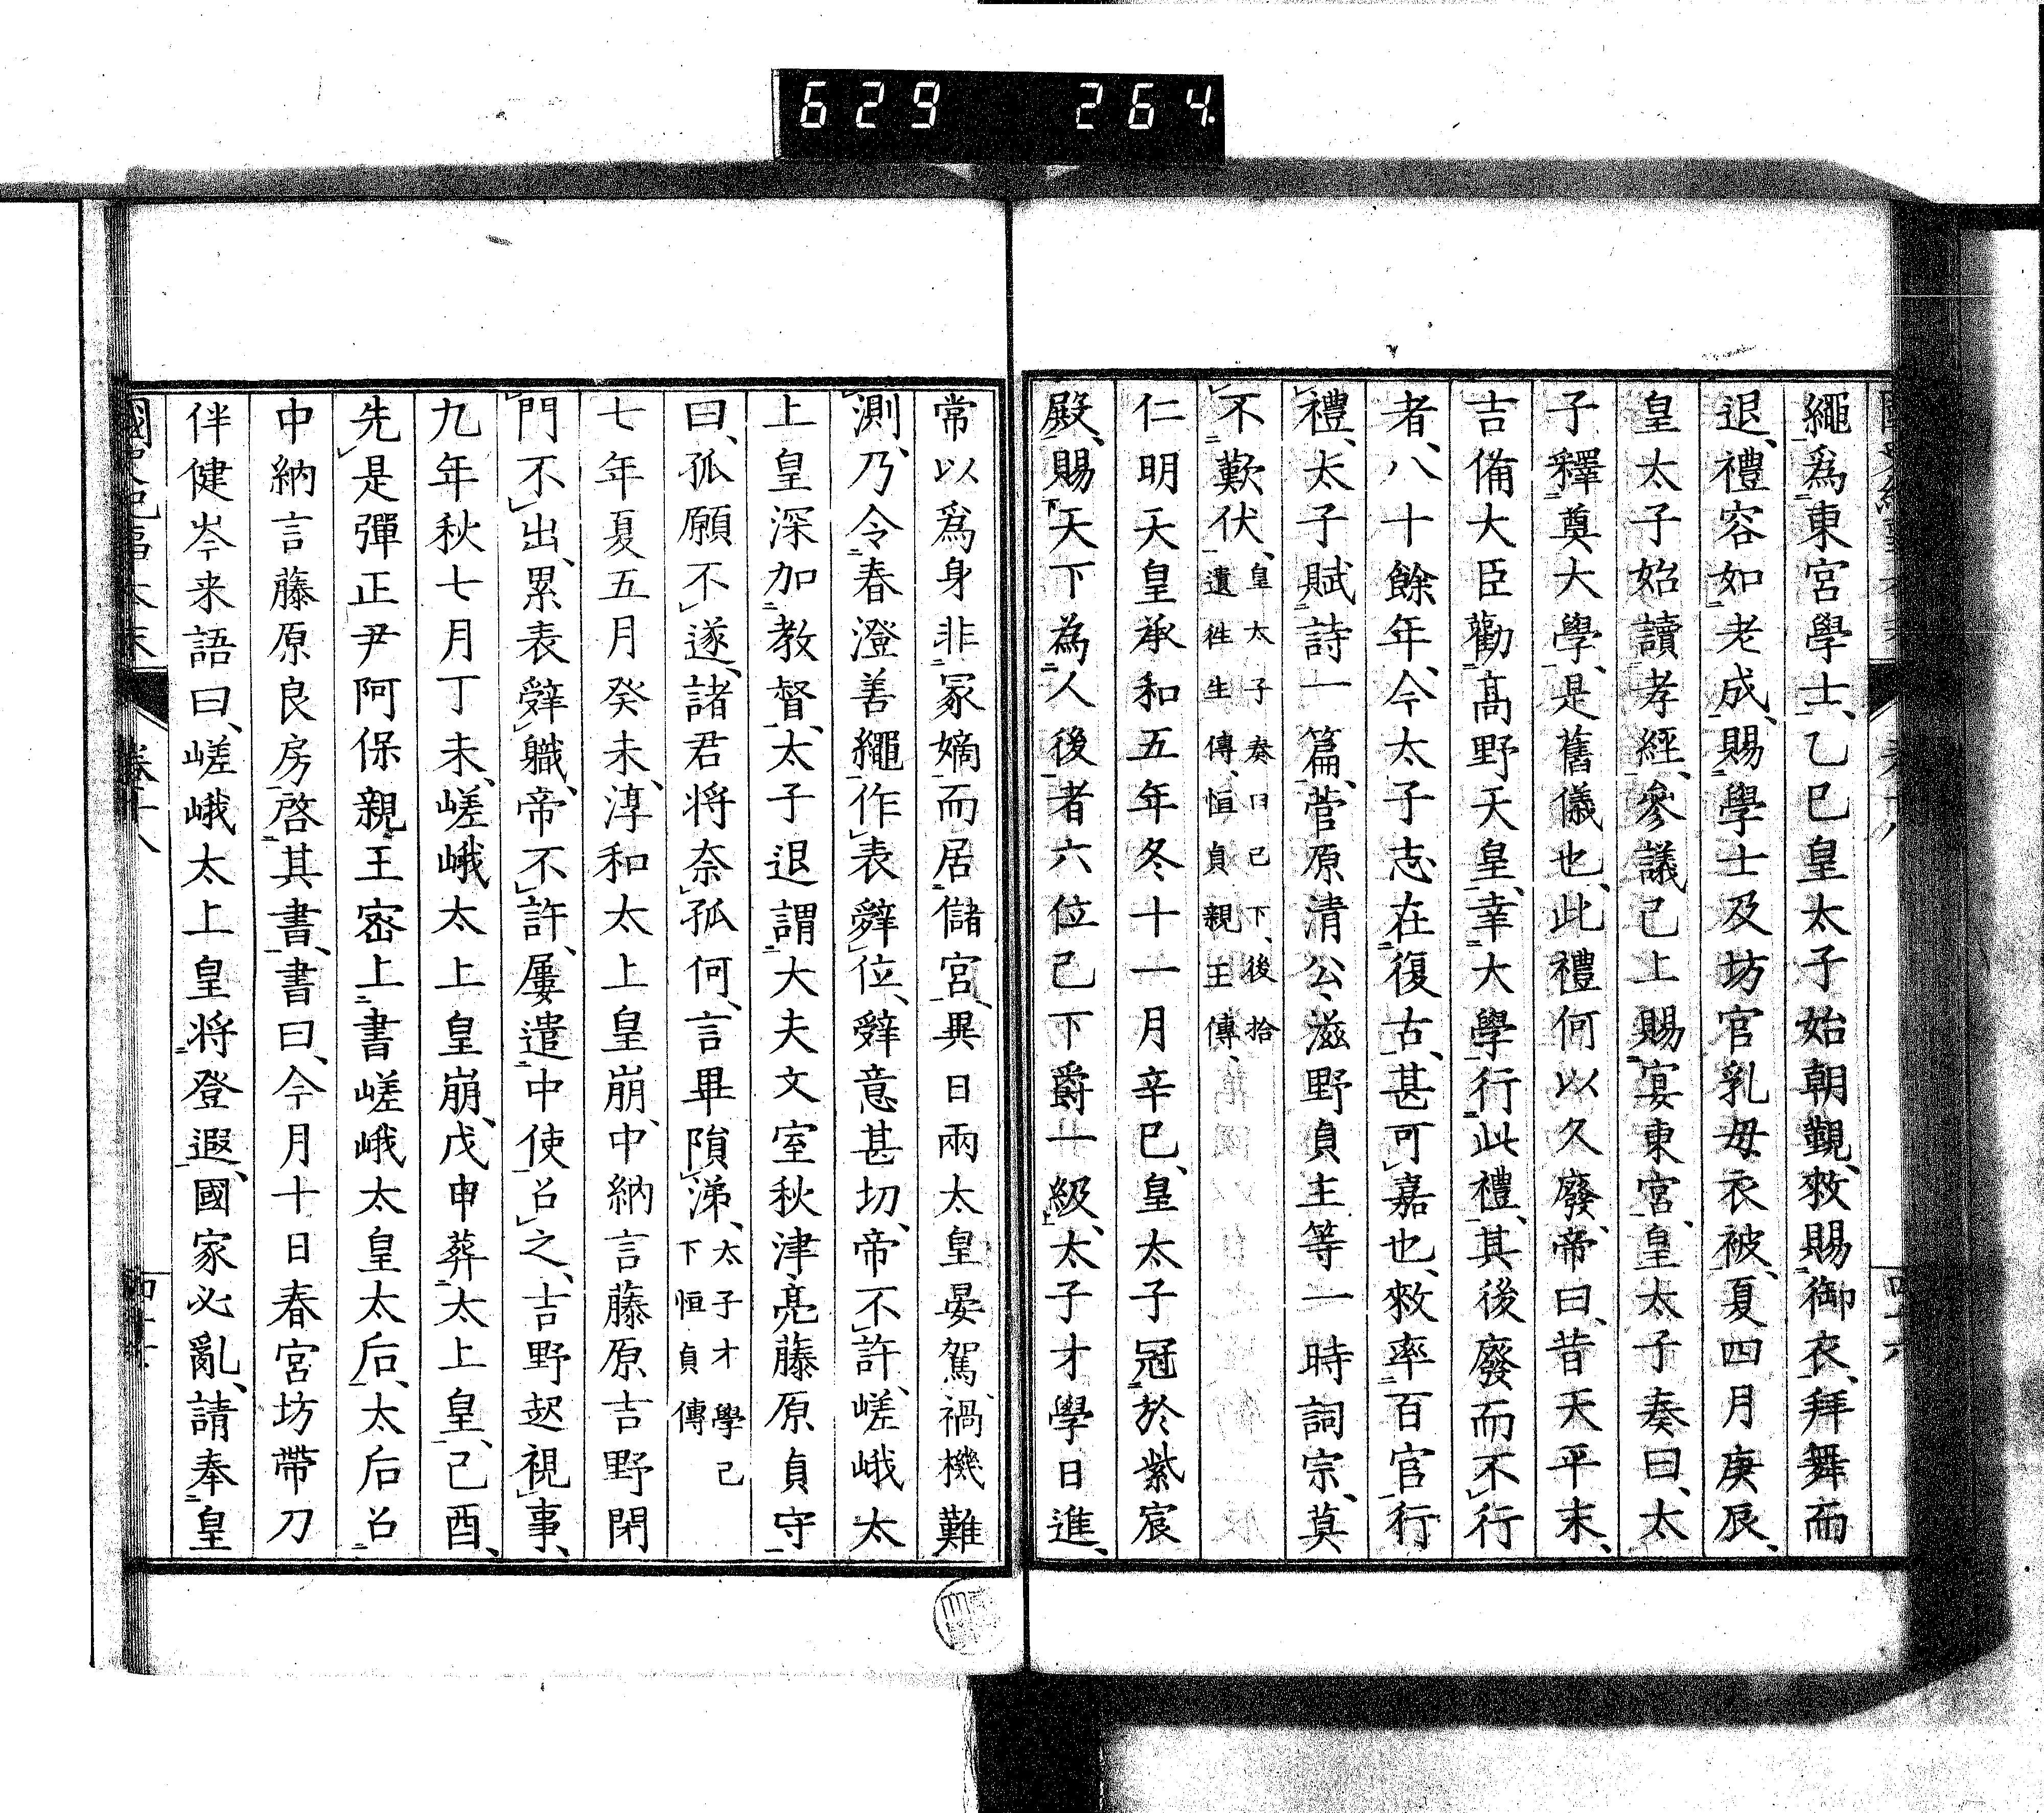 629 264.
繩爲東宮學士、乙巳皇太子始朝覲、敕賜御衣、拜舞而
退、禮容如老成、賜學士及坊官乳母衣被、夏四月庚辰、
皇太子始讀孝經、參議已上賜宴東宮、皇太子奏曰、太
子釋奠大學、是舊儀也、此禮何以久廢、帝曰、昔天平末、
吉備大臣勸高野天皇、幸大學行此禮、其後廢而不行
者、八十餘年、今太子志在復古、甚可嘉也、敕率百官行
禮、太子賦詩一篇、菅原清公、滋野貞主等一時詞宗、莫
不歎伏、皇太子奏曰已下、後拾
遺往生傳、恒貞親王傳、
仁明天皇承和五年冬十一月辛巳、皇太子冠於紫宸
殿、賜天下為人後者六位已下爵一級、太子才學日進、
常以爲身非冢嫡而居儲宮、異日兩太皇晏駕、禍機難
測、乃令春澄善繩作表辭位、辭意甚切、帝不許、嵯峨太
上皇深加教督、太子退謂大夫文室秋津、亮藤原貞守
曰、孤願不遂、諸君将奈孤何、言畢隕涕、太子才學已
下恒貞傳
七年夏五月癸未、淳和太上皇崩、中納言藤原吉野閉
門不出、累表辭職、帝不許、屢遣中使召之、吉野起視事、
九年秋七月丁未、嵯峨太上皇崩、戊申葬太上皇、己酉、
先是彈正尹阿保親王密上書嵯峨太皇太后、太后召
中納言藤原良房、啓其書、書曰、今月十日春宮坊帶刀
伴健岑来語曰、嵯峨太上皇将登遐、國家必亂、請奉皇